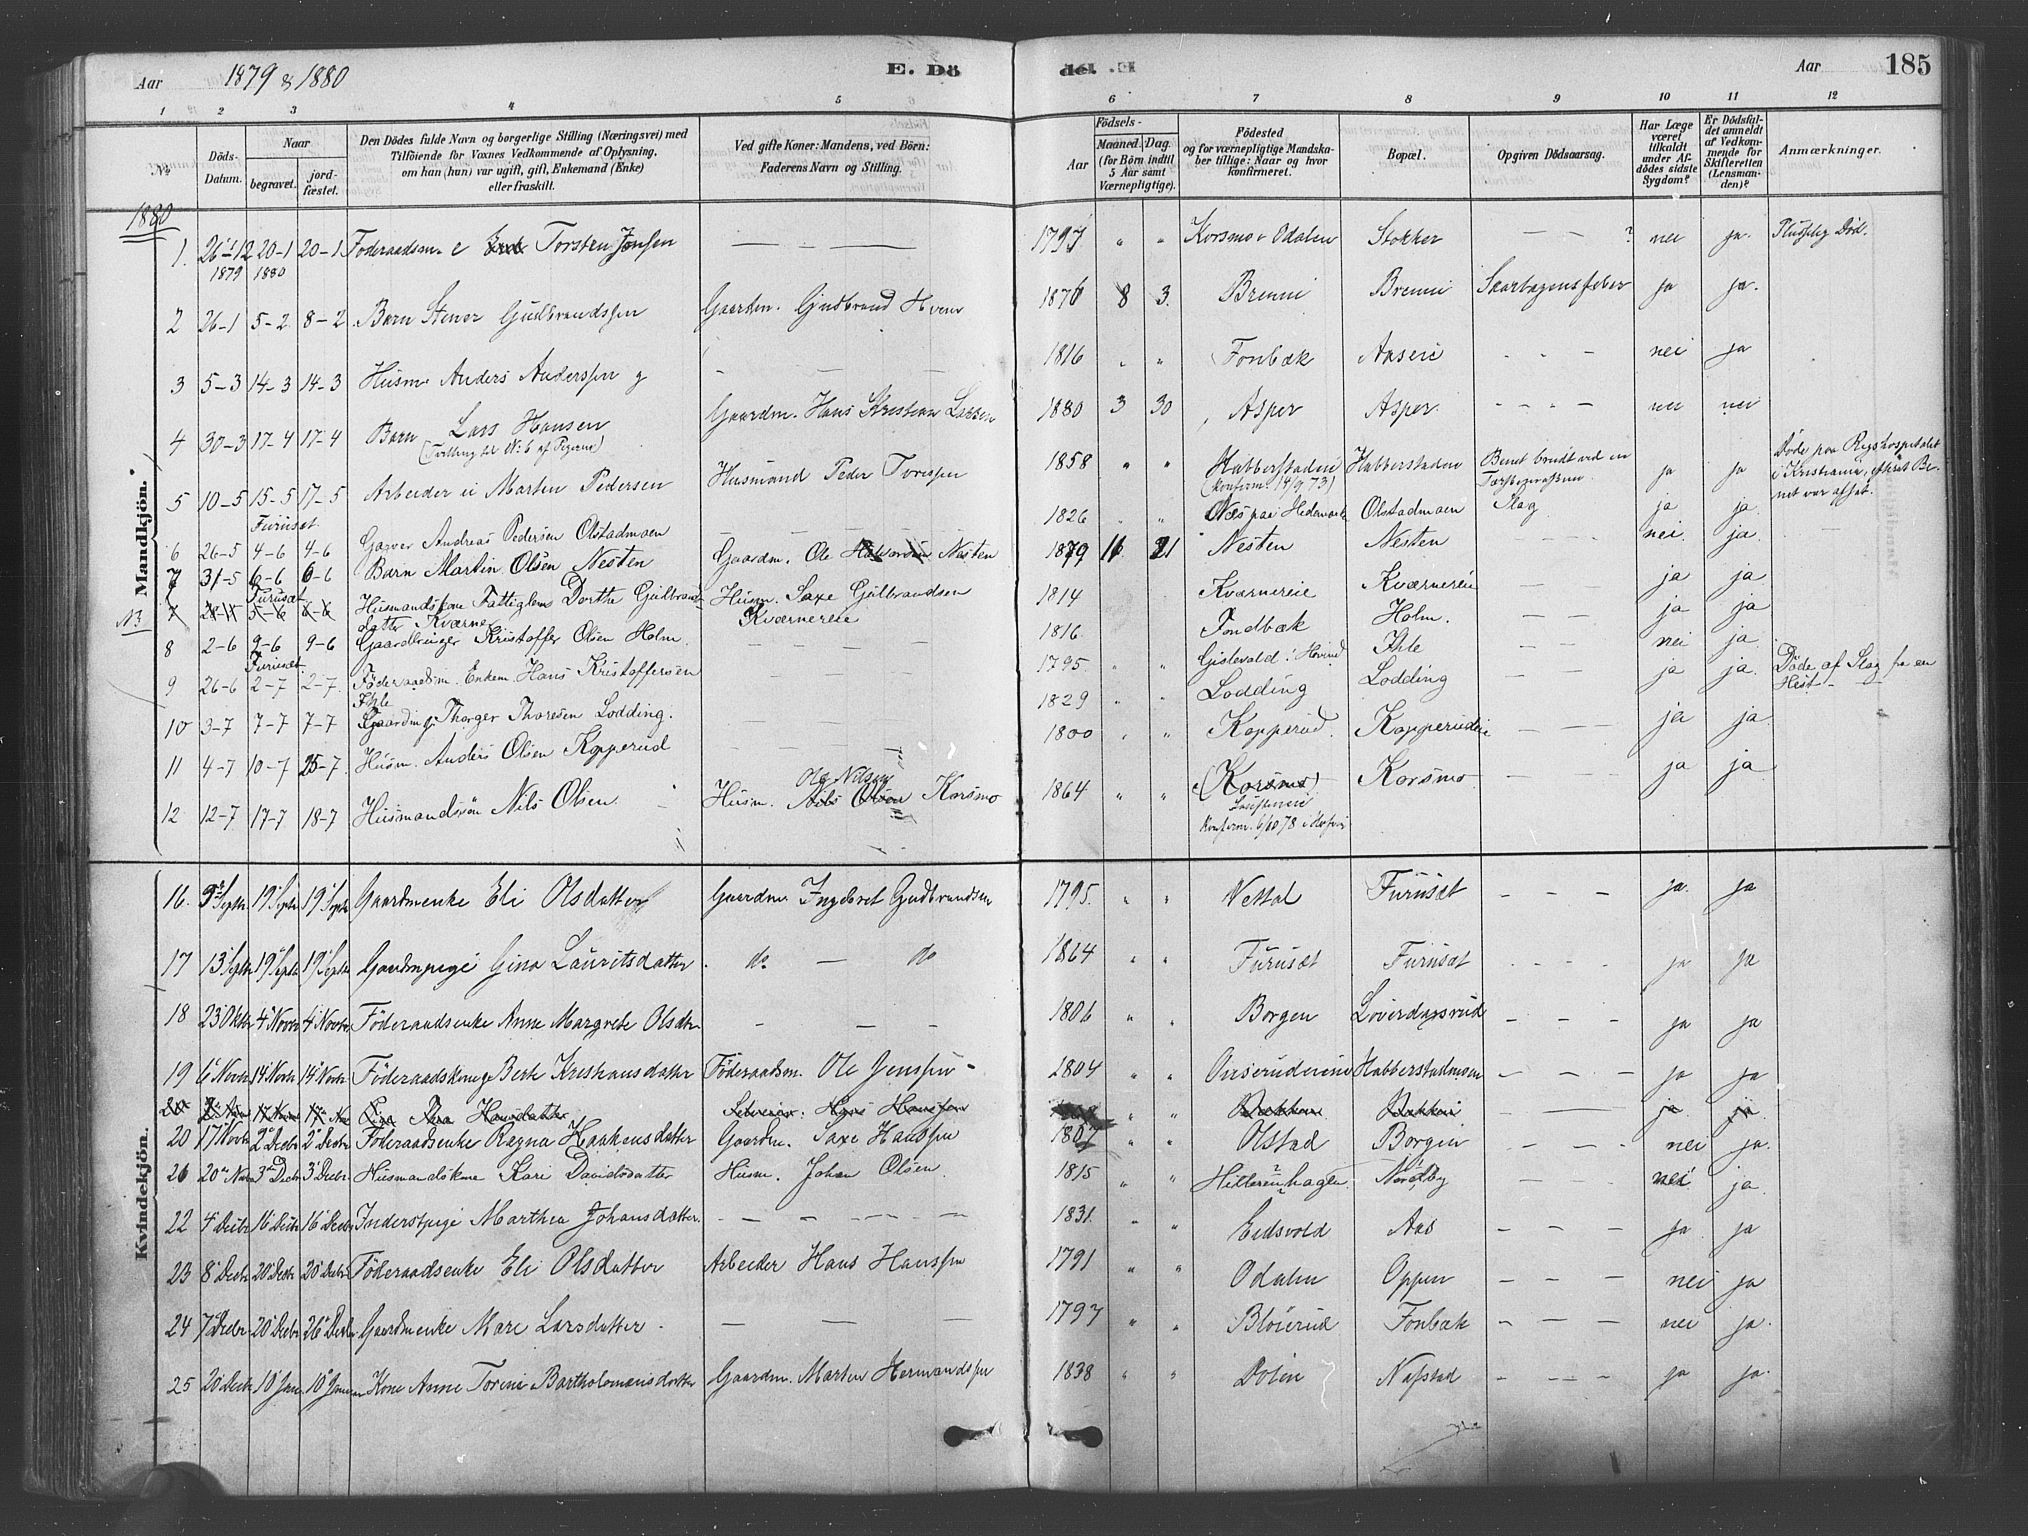 Aar 1879 & 1880 E. Dö del. E Aar 185
1 2 3 4 5 6 7 8 9 10 11 12
No
Döds-Datum.
Naar
begravet.
jord-fæstet.
Den Dödes fulde Navn og borgerlige Stilling (Næringsvei) med
Tilföiende for Voxnes Vedkommende af Oplysning,
om han (hun) var ugift, gift, Enkemand (Enke)
eller fraskilt.
Ved gifte Koner: Mandens, ved Börn:
Faderens Navn og Stilling.
Födsels-
Aar
Maaned. Dag.
(for Börn indtil
5 Aar samt
Værnepligtige).
Födested
og for værnepligtige Mandska-
ber tillige: Naar og hvor
konfirmeret.
Bopæl.
Opgiven Dödsaarsag.
Har Læge
været
tilkaldt
under Af-
dödes sidste
Sygdom?
Er Dödsfal-
det anmeldt
af Vedkom-
mende for
Skifteretten
(Lensman-
den)?
Anmærkninger.
1880
Mandkjön.
1. 26-12 1879 20-1 1880 20-1 Föderaadsm. e Torsten Jensen — — — 1797 " " Korsmo i Odalen Stokker — — ? nei ja. Pludselig Död.
2 26-1 5-2 8-2 Barn Stener Gudbrandssen Gaardm. Gudbrand Hvem 1876 8 3. Brenni Brenni Skarlagensfeber ja ja.
3 5-3 14-3 14-3 Husm. Anders Anderssen g — — — 1816 " " Fonbæk Aaseie - - - nei ja
4 30-3 17-4 17-4 Barn Lars Hansen Gaardm. Hans Kristian Larsen 1880 3 30 Asper Asper. - - - - nei nei
(Tvilling til No 6 af Pigerne)
5 10-5 15-5 17-5 Arbeider u Marten Pedersen Husmand Peder 1858 " " Habberstadeie Habberstadeie Benet brudt ved en ja ja Döde paa Rigshospitalet
(Konfirm. 14/9 73) i Kristiania, efterat Be-
net var afsat.
Furuset
6 26-5 4-6 4-6 Garver Andreas Pedersen Olstadmoen — — — 1826 " " Næs paa Hedemark Olstadmoen Slag ja ja.
7 31-5 6-6 6-6 Barn Martin Olsen Nesten Gaardm. Ole Halvorsen Nesten 1879 11 21 Nesten Nesten — — nei. ja.
Furuset
N3 7 28-11 5-6 6-6 Husmandskone Fattiglem Dorthe Gulbrands- Husm. Saxe Gulbrandsen 1814 Kværnereie Kværnereie — — ja ja
datter Kværner Kværnereie
8 2-6 9-6 9-6 Gaardbruger Kristoffer Olsen Holm. — — — 1816. Fondbæk Holm. — — ja ja
Furuset
9 26-6 2-7 2-7. Föderaadsm. Enkem Hans Kristoffersen — — — 1795 " " Gislevold i Hovind Ihle — — nei ja.
Ihle
10 3-7 7-7 7-7 Gaardmg. Thorger Thoresen Lodding. — — 1829 " Lodding Lodding — — ja ja. Döde af Slag fra en
Hest —
11 4-7 10-7 25-7 Husm. Anders Olsen Kopperud — — 1800 " " Kopperud. Kopperudeie — — ja ja
12 12-7 17-7 18-7 Husmandssön Nils Olsen. Husm. Ole Nilsen Nils Olsen Korsmo 1864 " " (Korsmo) Korsmo — — ja ja
Konfirm. 6/10 78
Kvindekjön.
16. 9 Septr. 19 Septr 19 Septr Gaardmenke Eli Olsdatter Gaardm Ingebret Gudbrandsen 1795. " " Vettal Furuset - - - ja. ja
17 13 Septr 19 Septr 19 Septr Gaardmpige Gina Lauritsdatter do — do 1864 " " Furuset Furuset - - - - ja ja
18 23 Oktr 4 Novbr 4 Novbr Föderaadsenke Anne Margrete Olsdtr — — — 1806 " " Borgen Loverdagsrud - - - ja ja
19 6 Novbr 14 Novbr 14 Novbr Föderaadskone g Berte Kristiansdatter Föderaadsm. Ole Jenssen - 1804 " " Habberstadmoen - - - ja ja
20 2 17 Novbr 17 Nov Hansdatter Hans Hanssen " " Bakken Bakken ja ja
20 17 Novbr 2 Decbr 2 Decbr Föderaadsenke Ragna Haakensdatter Gaardm. Saxe Hanssen 1807 " " Olstad Borgen - - - nei ja.
26 20 Nov 3 Decbr 3 Decbr Husmandskone Kari Davidsdatter Husm. Johan Olsen. 1815 " " Hillerenhagen. Nordby - - - nei ja.
22 4 Decbr 16 Decbr 16 Decbr Inderstpige Marthea Johansdatter. — — — — 1831. " " Eidsvold Aas - - - ja. ja
23 8 Decbr 20 Decbr 20 Decbr Föderaadsenke Eli Olsdatter Arbeider Hans Hanssen 1791 " " Odalen Oppen - - - nei ja
24 7 Decbr 20 Decbr 26 Decbr Gaardmenke Mare Larsdatter. — — — 1797 " " Blöierud Fonbæk - - - nei ja.
25 20 Decbr 10 Jan 10 Januar Kone Anne Torine Bartholomæusdatter Gaardm. Marten Hermandssen 1838 " " Dolin Nafstad - - - ja ja.